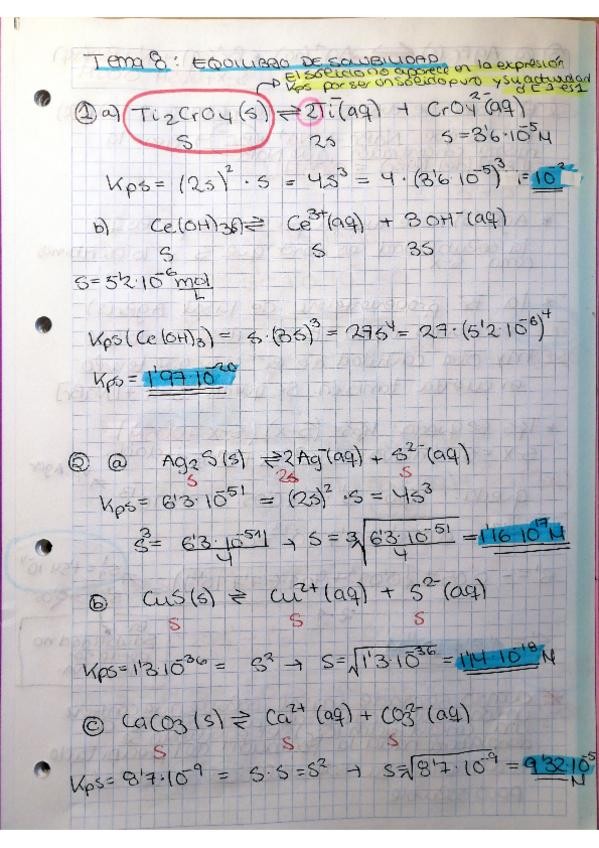 Tema 8: EQUILIBRO DE SOLUBILIDAD
→ El sólido no aparece en la expresión
Kps por ser un sólido puro y su actividad
es 1
① a) Ti₂CrO₄(s) ⇌ 2Ti⁻(aq) + CrO₄²⁻(aq)
S 2s S = 3'6·10⁻⁵M
Kps = (2s)²·s = 4s³ = 4·(3'6·10⁻⁵)³ =
b) Ce(OH)₃(s) ⇌ Ce³⁺(aq) + 3OH⁻(aq)
S S 3S
S = 5'2·10⁻⁶ mol/L
Kps(Ce(OH)₃) = s·(3s)³ = 27s⁴ = 27·(5'2·10⁻⁶)⁴
Kps = 1'97·10⁻²⁰
② ⓐ Ag₂S(s) ⇌ 2Ag⁻(aq) + S²⁻(aq)
S 2s S
Kps = 6'3·10⁻⁵¹ = (2s)²·s = 4s³
s³ = 6'3·10⁻⁵¹/4 → s = ³√(6'3·10⁻⁵¹/4) = 1'16·10⁻¹⁷ M
ⓑ CuS(s) ⇌ Cu²⁺(aq) + S²⁻(aq)
S S S
Kps = 1'3·10⁻³⁶ = s² → s = √1'3·10⁻³⁶ = 1'14·10⁻¹⁸ M
ⓒ CaCO₃(s) ⇌ Ca²⁺(aq) + CO₃²⁻(aq)
S S S
Kps = 8'7·10⁻⁹ = s·s = s² → s = √8'7·10⁻⁹ = 9'32·10⁻⁵
M